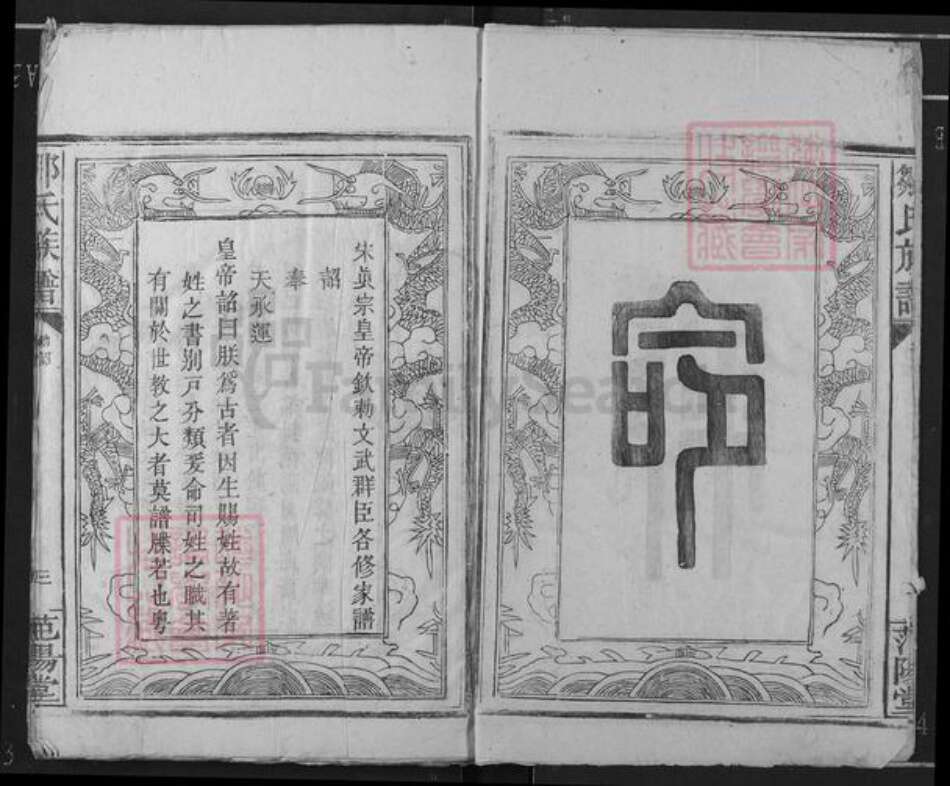 命
鄒氏族譜
范陽堂
宋真宗皇帝欽勅文武群臣各修家譜
詔
奉
天承運
皇帝詔曰朕爲古者因生賜姓故有著
姓之書別戸分類爰命司姓之職其
有關於世教之大者莫譜牒若也粤
鄒氏族譜
三
范陽堂
FamilySearch